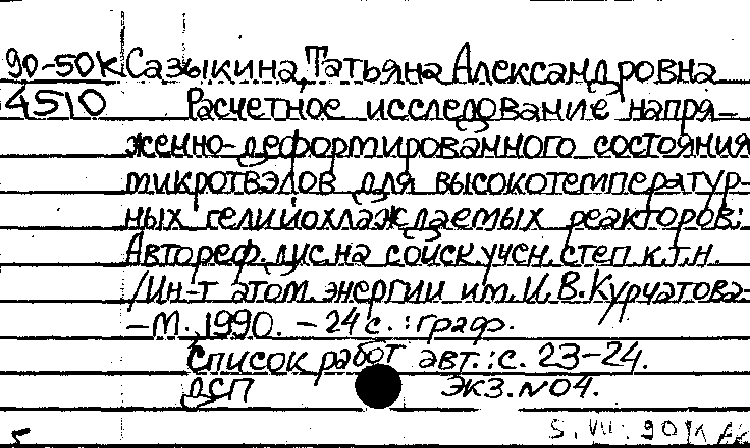 90-50К Сазыкина, Татьяна Александровна
4510 Расчетное исследование напря-
женно-деформированного состояния
микротвэлов для высокотемператур-
ных гелийохлаждаемых реакторов:
Автореф. дис. на соиск. учен. степ. к.т.н.
/Ин-т атом. энергии им. И.В. Курчатова.-
-М., 1990. - 24 с. : граф.
Список работ авт.: с. 23-24.
ДСП Экз. №04.
5